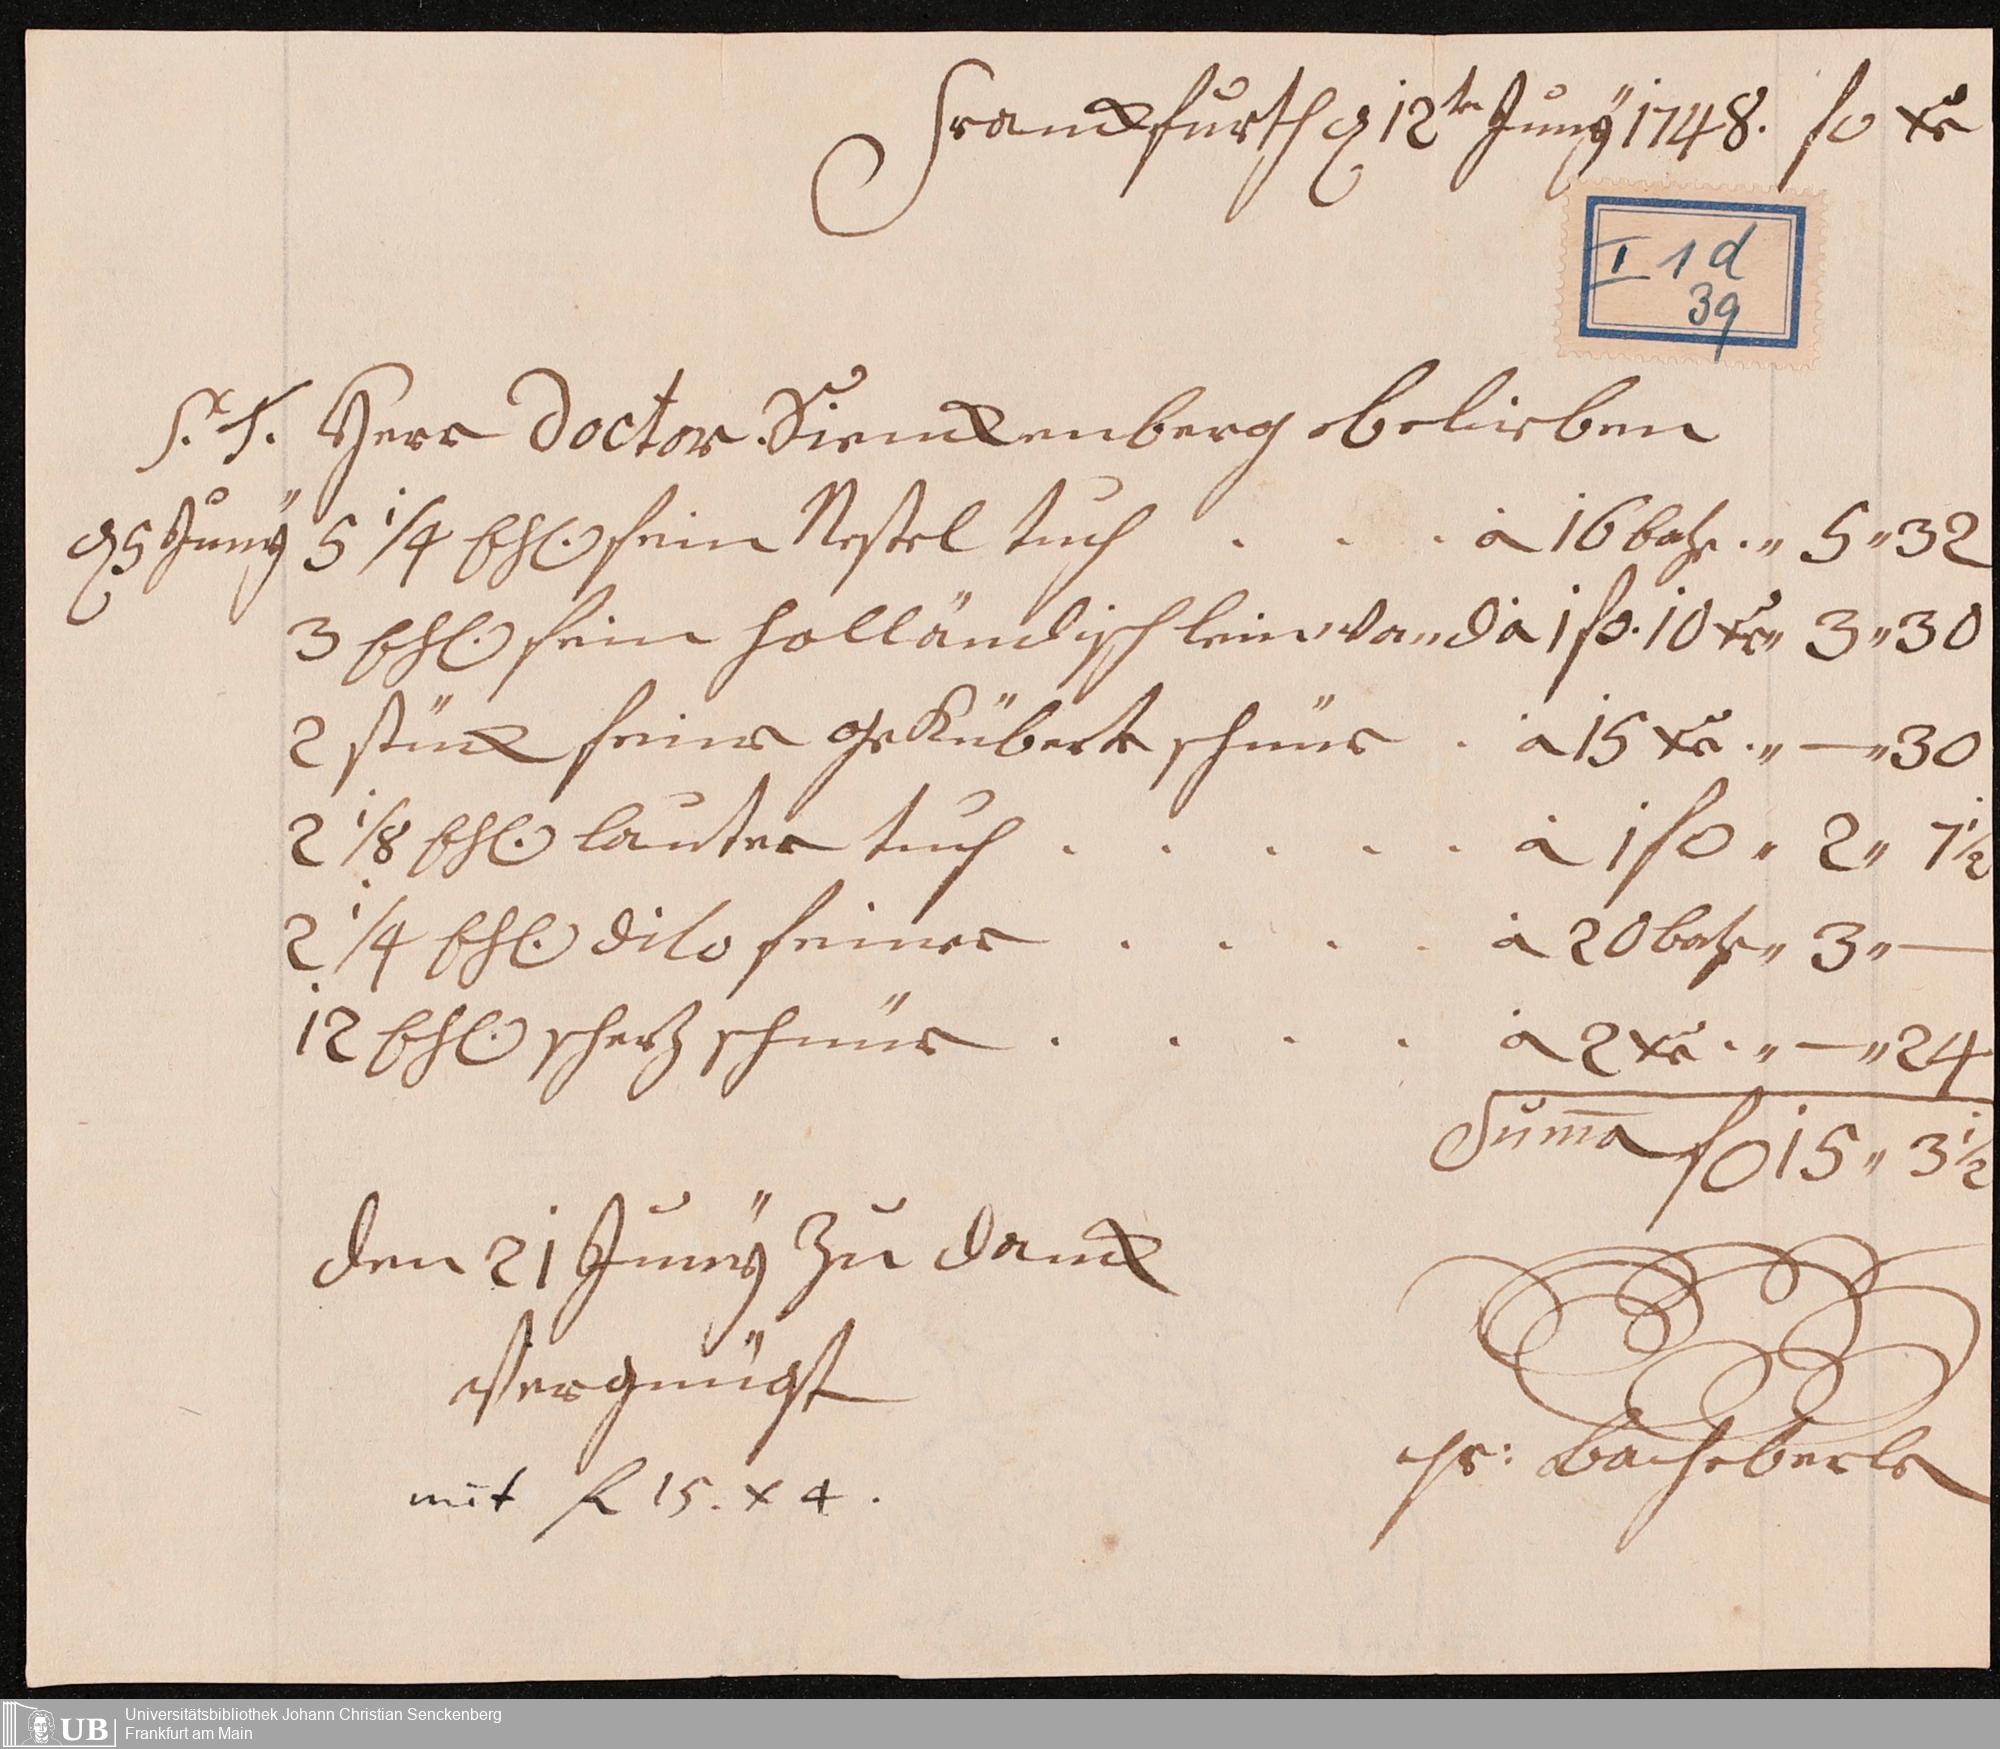 Franckfurth d 12tn Junÿ 1748. fl xr
I 1 d
39
S. T. Herr Doctor Sienckenberg belieben
d 5 Junÿ 5 1/4 Ehl. fein Nestel tuch . . . à 16 batz. " 5 " 32
3 Ehl. fein holländisch leinwand à 1 fl. 10 xr " 3 " 30
2 stück feine geKüberte schnür . à 15 xr. " — " 30
2 1/8 Ehl. lauter tuch . . . . . à 1 fl " 2 " 7 1/2
2 1/4 Ehl. dito feiner . . . . à 20 batz " 3 " —
12 Ehl. schertz schnür . . . . à 2 xr. " — " 24
Suma fl 15 " 3 1/2
den 21 Junÿ zu danck
Vergnügt
mit f 15. x 4.
Bacheberle
UB Universitätsbibliothek Johann Christian Senckenberg
Frankfurt am Main